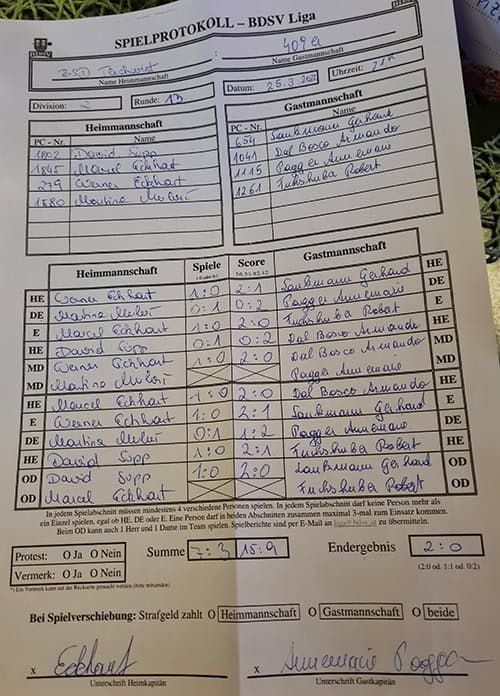 SPIELPROTOKOLL – BDSV Liga
BSD : 409a
Name Heimmannschaft Name Gastmannschaft
Division: 2 Runde: 13 Datum: 25.3.2022 Uhrzeit:
Heimmannschaft Gastmannschaft
PC - Nr. Name PC - Nr. Name
1802 David Supp 654 Laukmann Gerhard
1845 Marcel Eckhart 1041 Dal Bosco Armando
279 Werner Eckhart 1115 Pagger Annemarie
1880 Martina 1261 Fuchshuber Robert
Heimmannschaft Spiele Score Gastmannschaft
1:0 oder 0:1 2:0, 2:1, 0:2, 1:2
HE Werner Eckhart 1:0 2:1 Laukmann Gerhard HE
DE Martina 0:1 0:2 Pagger Annemarie DE
E Marcel Eckhart 1:0 2:0 Fuchshuber Robert E
HE David Supp 0:1 0:2 Dal Bosco Armando HE
MD Werner Eckhart 1:0 2:0 Dal Bosco Armando MD
MD Martina Pagger Annemarie MD
HE Marcel Eckhart 1:0 2:0 Dal Bosco Armando HE
E Werner Eckhart 1:0 2:1 Laukmann Gerhard E
DE Martina 0:1 1:2 Pagger Annemarie DE
HE David Supp 1:0 2:1 Fuchshuber Robert HE
OD David Supp 1:0 2:0 Laukmann Gerhard OD
OD Marcel Eckhart Fuchshuber Robert OD
In jedem Spielabschnitt müssen mindestens 4 verschiedene Personen spielen. In jedem Spielabschnitt darf keine Person mehr als
ein Einzel spielen, egal ob HE, DE oder E. Eine Person darf in beiden Abschnitten zusammen maximal 3-mal zum Einsatz kommen.
Beim OD kann auch 1 Herr und 1 Dame im Team spielen. Spielberichte sind per E-Mail an liga@bdsv.at zu übermitteln.
Protest: O Ja O Nein Summe 7:3 15:9 Endergebnis 2:0
Vermerk: O Ja O Nein (2:0 od. 1:1 od. 0:2)
*) Ein Vermerk kann auf der Rückseite gemacht werden (bitte mitsenden)
Bei Spielverschiebung: Strafgeld zahlt O Heimmannschaft O Gastmannschaft O beide
x Eckhart x Annemarie Pagger
Unterschrift Heimkapitän Unterschrift Gastkapitän